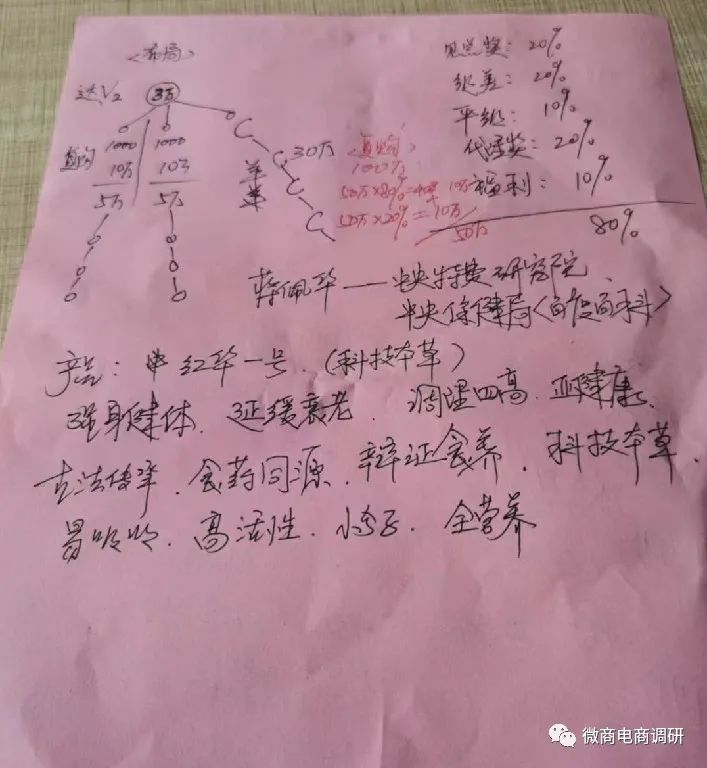 <布局>
达1/2
3万
直向
1000
10万
5万
1000
10万
5万
30万
10%
50万×80%=40万
50万×20%=10万
50万
见点奖：20%
级差：20%
平级：10%
代理奖：20%
福利：10%
80%
蒋佩华——中央特费研究院、
中央保健局<百度百科>
产品：中红华一号（科技本草）
强身健体、延缓衰老、调理四高、亚健康、
古法传承、食药同源、辩证食养、科技本草、
胃吸收、高活性、小分子、全营养
微商电商调研